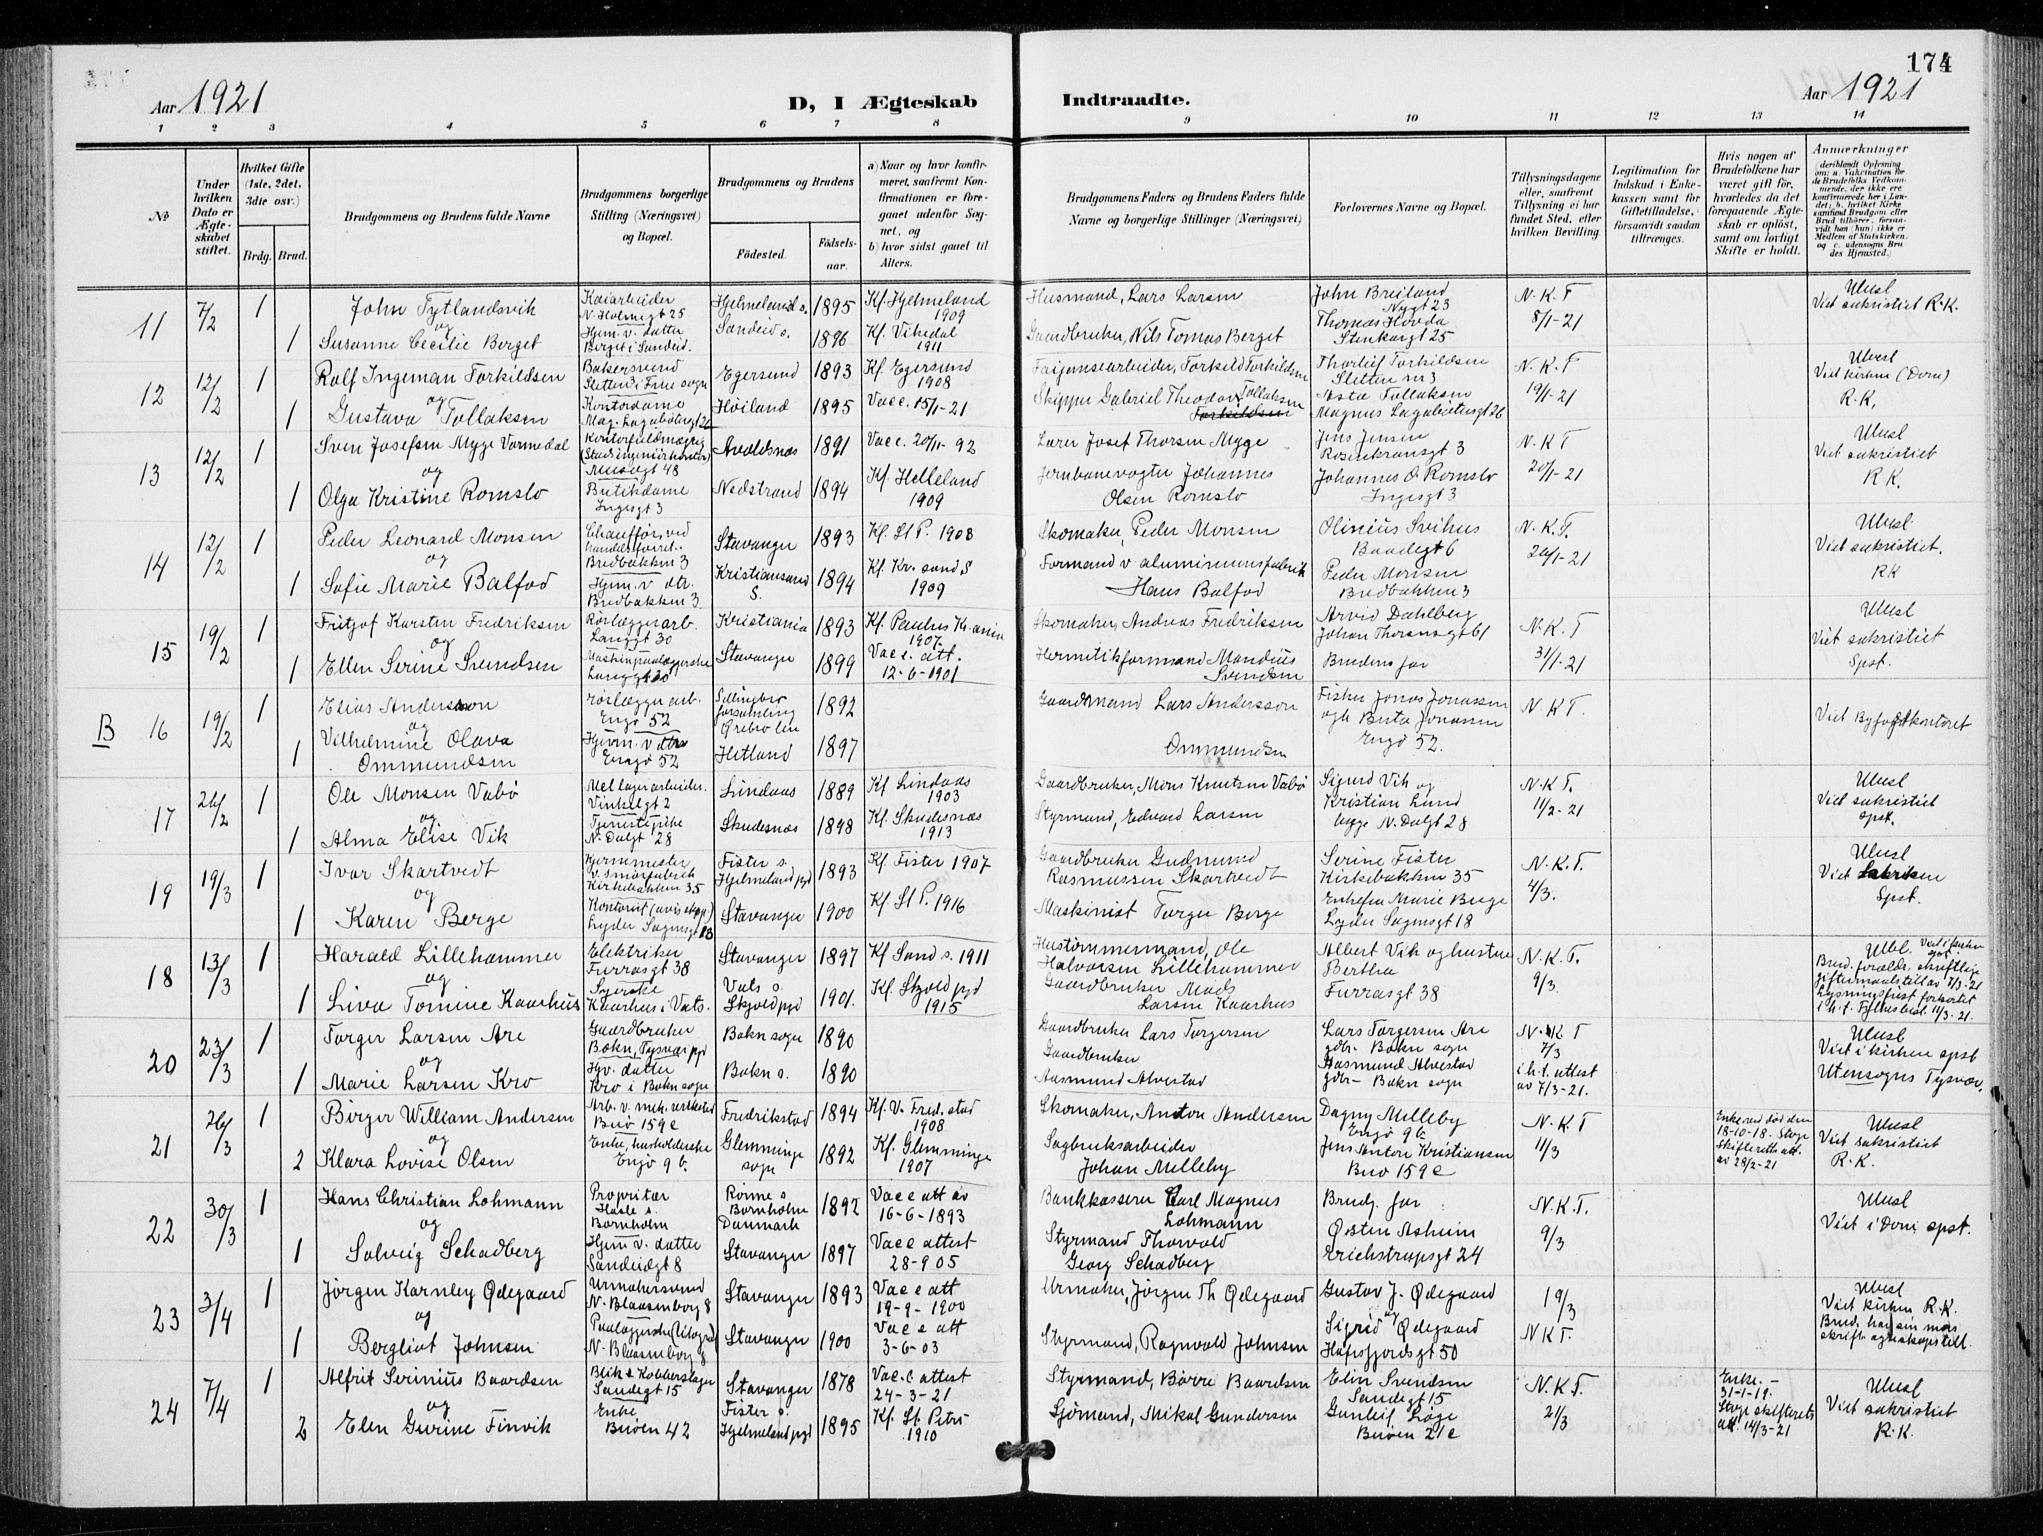 174
Aar 1921
D, I Ægteskab
Indtraadte.
Aar 1921
1 2 3 4 5 6 7 8 9 10 11 12 13 14
No
Under hvilken Dato er Ægteskabet stiftet.
Hvilket Gifte (1ste, 2det, 3die osv.)
Brdg. Brud.
Brudgommens og Brudens fulde Navne
Brudgommens borgerlige Stilling (Næringsvei) og Bopæl.
Brudgommens og Brudens
Fødested.
Fødselsaar.
a) Naar og hvor konfirmeret, saafremt Konfirmationen er foregaaet udenfor Sognet, og
b) hvor sidst gaaet til Alters.
Brudgommens Faders og Brudens Faders fulde Navne og borgerlige Stillinger (Næringsvei)
Forlovernes Navne og Bopæl.
Tillysningsdagene eller, saafremt Tillysning ei har fundet Sted, efter hvilken Bevilling.
Legitimation for Indskud i Enkekassen samt for Giftetilladelse, forsaavidt saadan tiltrænges.
Hvis nogen af Brudefolkene har været gift før, hvorledes da det foregaaende Ægteskab er opløst, samt om lovligt Skifte er holdt.
Anmærkninger
(deriblandt Oplysning om: a. Vakcination for de Brudefolks Vedkommende, der ikke ere konfirmerede her i Landet; b. hvilket Kirkesamfund Brudgom eller Brud tilhører, forsaavidt han (hun) ikke er Medlem af Statskirken, og c. udensogns Brudes Hjemsted.)
11 7/2 1 John Tytlandsvik Kaiarbeider N. Holmegt 25 Hjelmeland s. 1895 Kf. Hjelmeland 1909 Husmand, Lars Larsen John Breiland Nygt 23 N.K.T Ulusl
og
1 Susanne Cecilie Berget Hjem. v. datter Berget i Sandeid. Sandeid s. 1896 Kf. Vikedal 1911 Gaardbruker, Nils Tomas Berget Thomas Hovda Stenkargt 25 8/1-21 Viet sakristiet R.K.
12 12/2 1 Rolf Ingeman Torkildsen Bakersvend Sletten i Frue sogn Egersund 1893 Kf. Egersund 1908 Faijansearbeider, Torkild Torkildsen Thorleif Torkildsen Sletten nr 3 N.K.T Ulusl Viet kirken (Dom)
og
1 Gustava Tollaksen Kontordame Mag. Lagabøtersgt 26 Høiland 1895 Vacc. 15/1-21 Skipper Gabriel Theodor Tollaksen Asta Tollaksen Magnus Lagabøtersgt 26 19/1-21 R.K.
13 12/2 1 Sven Josefsen Myge Vormedal Kontorfuldmægtig (Stadsingeniørkontor) Musegt 48 Avaldsnes 1891 Vacc. 20/11-92 Lærer Josef Thorsen Myge Jens Jensen Rosenkransgt 3 N.K.T Ulusl Viet sakristiet
og
1 Olga Kristine Romslo Butikdame Ingesgt 3 Nedstrand 1894 Kf. Helleland 1909 Jernbanevogter Johannes Olsen Romslo Johannes O Romslo Ingesgt 3 20/1-21 R K.
14 12/2 1 Peder Leonard Monsen Chauffør, ved Bredbakken 3 Stavanger 1893 Kf. St P. 1908 Skomaker, Peder Monsen Olinius Svihus Baadegt 6 N.K.T. Ulusl Viet sakristiet.
og
1 Sofie Marie Balfod Hjem. v. dtr. Bredbakken 3 Kristiansand S. 1894 Kf. Kr.sand S 1909 Formand v aluminiumsfabrik Hans Balfod Peder Monsen Bredbakken 3 26/1-21 RK
15 19/2 1 Fritjof Karsten Fredriksen Rørlæggerarb. Langgt 30 Kristiania 1893 Kf. Paulus Kr.ania 1907 Skomaker, Andreas Fredriksen Arvid Dahlberg Johan Thorsensgt 61 N.K.T Ulusl Viet sakristiet
og
1 Ellen Serine Svendsen Langgt 30 Stavanger 1899 Vacc. att. 12-6-1901 Hermetikformand Mandius Svendsen Brudens far 31/1-21 Spst.
B 16 19/2 1 Elias Andersson rørlægger arb. Engø 52 forsamling Örebro len 1892 Gaardmand Lars Andersson Fisker Jonas Jonassen og Berta Jonassen Engø 52. N.K.T. Viet Byfogdkontoret
og
1 Vilhelmine Olava Ommundsen Hjem. v. dtr Engø 52 Hetland 1897 Ommundsen
17 26/2 1 Ole Monsen Vabø Mel lagerarbeider. Vinkelgt 2 Lindaas 1889 Kf Lindaas 1903 Gaardbruker, Mons Knutsen Vabø Sigurd Vik og N.K.T. Ulusl Viet sakristiet
og
1 Alma Elise Vik Tjenestepike N. Dalgt 28 Skudesnæs 1898 Kf. Skudesnæs 1913 Styrmand, Edvard Larsen Kristian Lund begge N. Dalgt 28 11/2-21 Spst.
19 19/3 1 Ivar Skartvedt v. smørfabrik Kirkebakken 35 Fister s. Hjelmeland pgd 1893 Kf Fister 1907 Gaardbruker Gudmund Rasmussen Skartvedt Serine Fister Kirkebakken 35 N.K.T. Ulusl
og
1 Karen Berge Kontorist (avis eksp.) Lyder Sagensgt 18 Stavanger 1900 Kf St P. 1916 Maskinist Torger Berge Enkefru Marie Berge Lyder Sagensgt 18 4/3. Spst.
18 13/3 1 Harald Lillehammer Elektriker Furrasgt 38 Stavanger 1897 Kf Sand s. 1911 Hustømmermand, Ole Halvorsen Lillehammer Albert Vik og hustru Bertha Furrasgt 38 N.K.T. Ulbl. Viet i kirken spst.
og
1 Liva Tomine Kaarhus Syerske Kaarhus i Vats. Vats s. Skjold pgd 1901. Kf. Skjold pgd 1915 Gaardbruker Mads Larsen Kaarhus 9/3. Brud. forældr. skriftlige giftermaalstill av 7/3-21 Lysningsfrist forkortet i h.t. Fylkesbesl. 11/3-21.
20 23/3 1 Torger Larsen Are Gaardbruker Bokn, Tysvær pgd Bokn sogn 1890 Gaardbruker Lars Torgersen Lars Torgersen Are gdbr. Bokn sogn N.K.T 7/3 Ulusl Viet i kirken spst
og
1 Marie Larsen Kro Hjv. datter Kro i Bokn sogn Bokn s. 1890 Gaardbruker Aasmund Alvestad Aasmund Alvestad gdbr- Bokn sogn i h.t. attest av 7/3-21. Utensogns Tysvær.
21 26/3 1 Birger William Andersen Arb. v. mek. verksted Buø 159c Fredrikstad 1894 Kf. V. Fred.stad 1908 Skomaker, Anton Andersen Dagny Melleby Engø 9b N.K.T Enke ved død den 18-10-18. Ulusl Viet sakristiet
og
2 Klara Lovise Olsen Enke, husholderske Engø 9b. Glemminge sogn 1892 Kf. Glemminge 1907 Sagbruksarbeider Johan Melleby Jens Anton Kristiansen Buø 159c 11/3 Skifteretts att. av 28/2-21 R.K.
22 30/3 1 Hans Christian Lohmann Proprietær Hasle s. Bornholm Rønne s Bornholm Danmark 1892 Vacc att av 16-6-1893 Bankkasserer Carl Magnus Lohmann Brudg. far N.K.T. Ulusl
og
1 Solveig Schadberg Hjem v. datter Sandeigt 8 Stavanger 1897 Vacc attest 28-9 05 Styrmand Thorvald Georg Schadberg Østen Asheim Erichstrupsgt 24 9/3 Viet i Dom. spst.
23 3/4 1 Jørgen Karnley Ødegaard Urmakersvend N. Blaasenborg 8 Stavanger 1893 Vacc att 19-9-1900 Urmaker, Jørgen Th Ødegaard Gustav J. Ødegaard 19/3 Ulusl Viet kirken R.K.
og
1 Bergliot Johnsen N. Blaasenborg 8 Stavanger 1900 Vacc att 3-6-03 Styrmand, Ragnvald Johnsen og Sigrid Ødegaard Hafrsfjordsgt 50 NKT. Brud. har sin mors skriftl.
24 7/4 1 Alfrit Serinius Baardsen Blik & Kobberslager Sandegt 15 Stavanger 1878 Vac.c attest 24-3-21 Styrmand, Børre Baardsen Elin Svendsen Sandegt 15 N.K.T. Enke. - 31-1-19. Ulusl Viet sakristiet
og
2 Elen Gurine Finvik Enke Buøen 42 Fister s. Hjelmeland pgd 1895 Kf. St. Petri 1910 Sjømand, Mikal Gundersen Gunleif Løge Buøen 21c 21/3 Skifteretts att. 14/3-21 R.K.